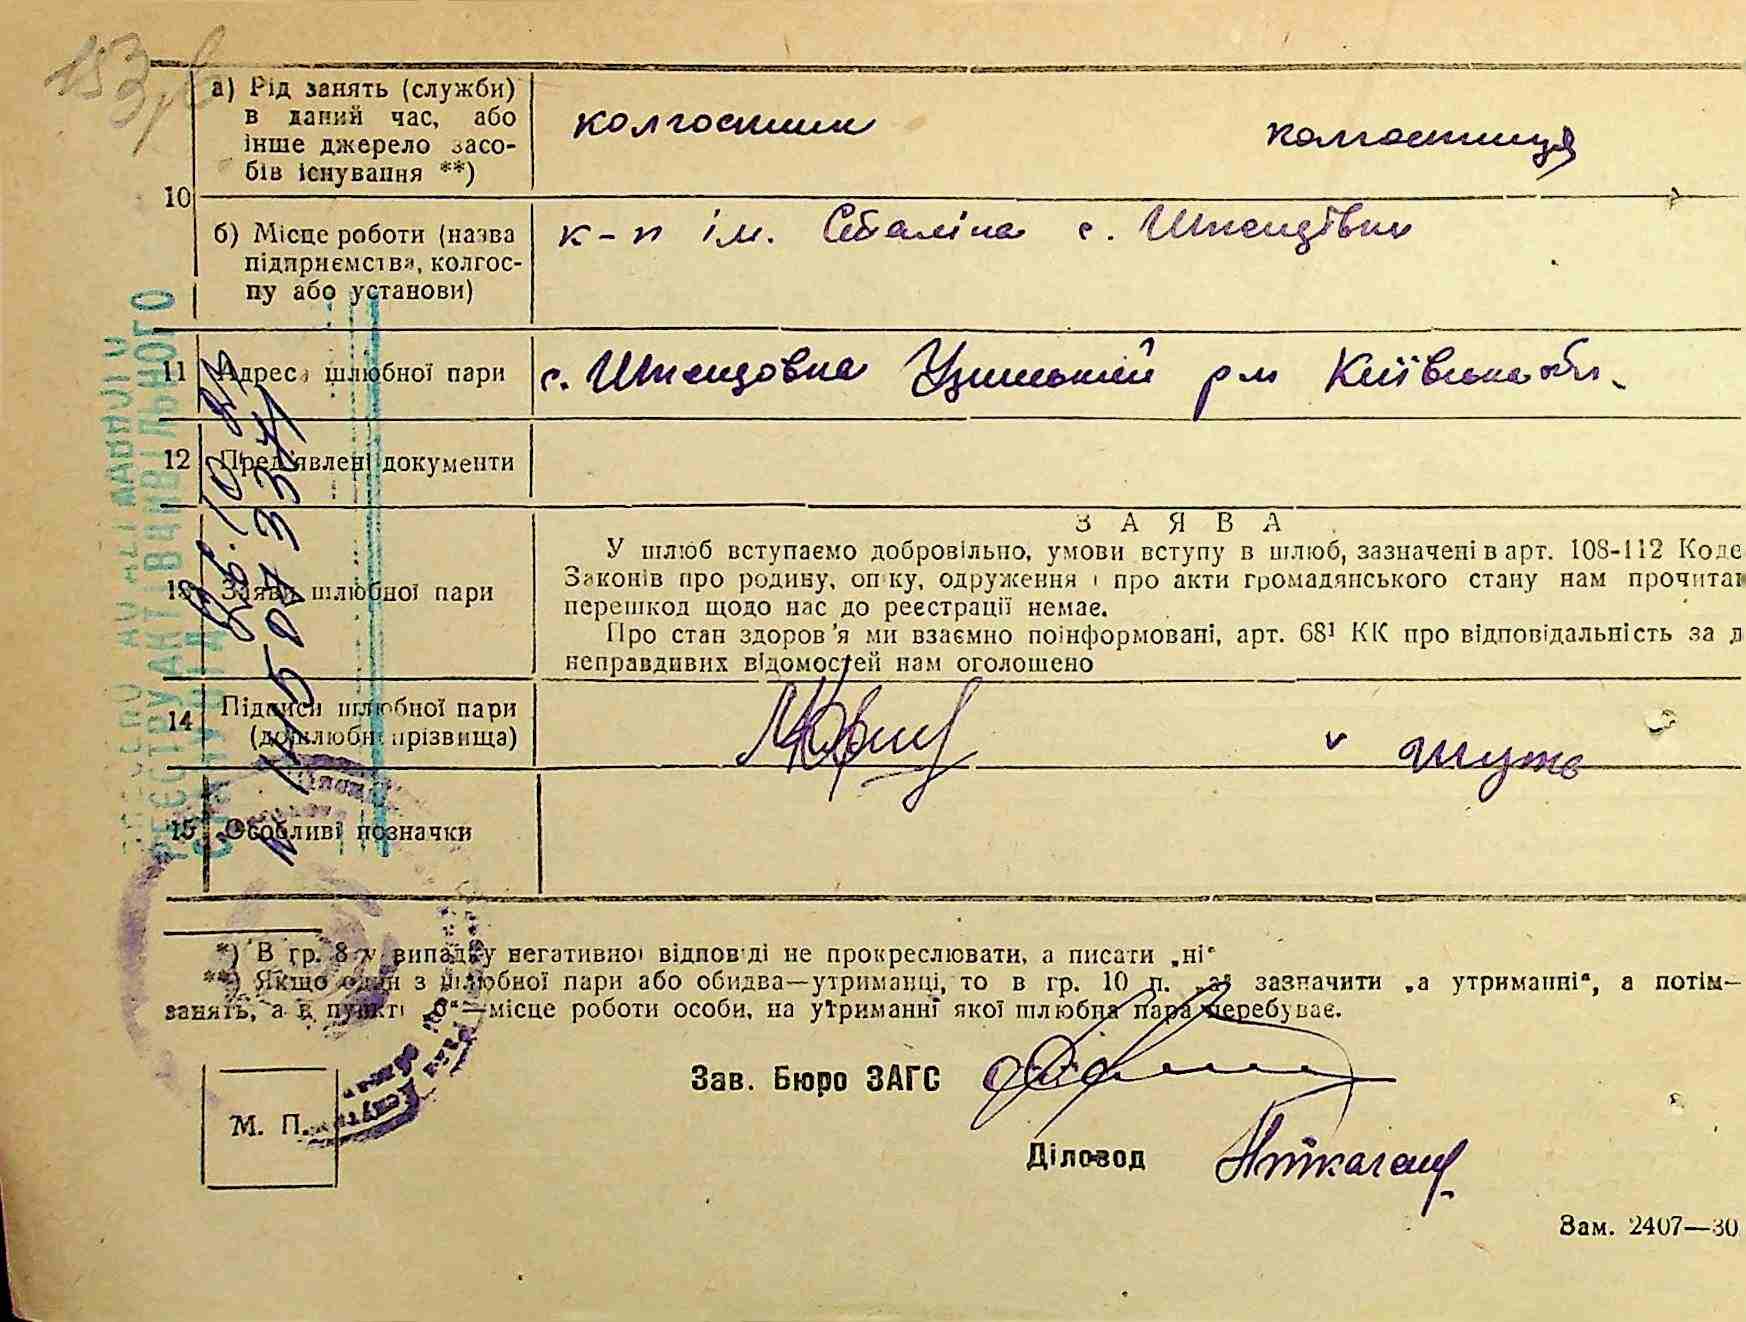 153
а) Рід занять (служби)
в даний час, або
інше джерело засо-
бів існування **)
колгоспник
колгоспниця
10
б) Місце роботи (назва
підприємства, колгос-
пу або установи)
к-п ім. Сталіна с. Шпендівки
11 Адреса шлюбної пари
с. Шпендовка Узинський р-н Київська обл.
12 Пред'явлені документи
13 Заяви шлюбної пари
ЗАЯВА
У шлюб вступаємо добровільно, умови вступу в шлюб, зазначені в арт. 108-112 Коде
Законів про родину, опіку, одруження і про акти громадянського стану нам прочитан
перешкод щодо нас до реєстрації немає.
Про стан здоров'я ми взаємно поінформовані, арт. 68¹ КК про відповідальність за д
неправдивих відомостей нам оголошено
14 Підписи шлюбної пари
(дошлюбні прізвища)
Шуть
15 Особливі позначки
РЕЄСТРУ АКТІВ ЦИВІЛЬНОГО
СТАНУ
*) В гр. 8 у випадку негативної відповіді не прокреслювати, а писати „ні“
**) Якщо один з шлюбної пари або обидва—утриманці, то в гр. 10 п. „а“ зазначити „а утриманні“, а потім—
занять, а в пункті „б“—місце роботи особи, на утриманні якої шлюбна пара перебуває.
Зав. Бюро ЗАГС
М. П.
Діловод
Зам. 2407—30